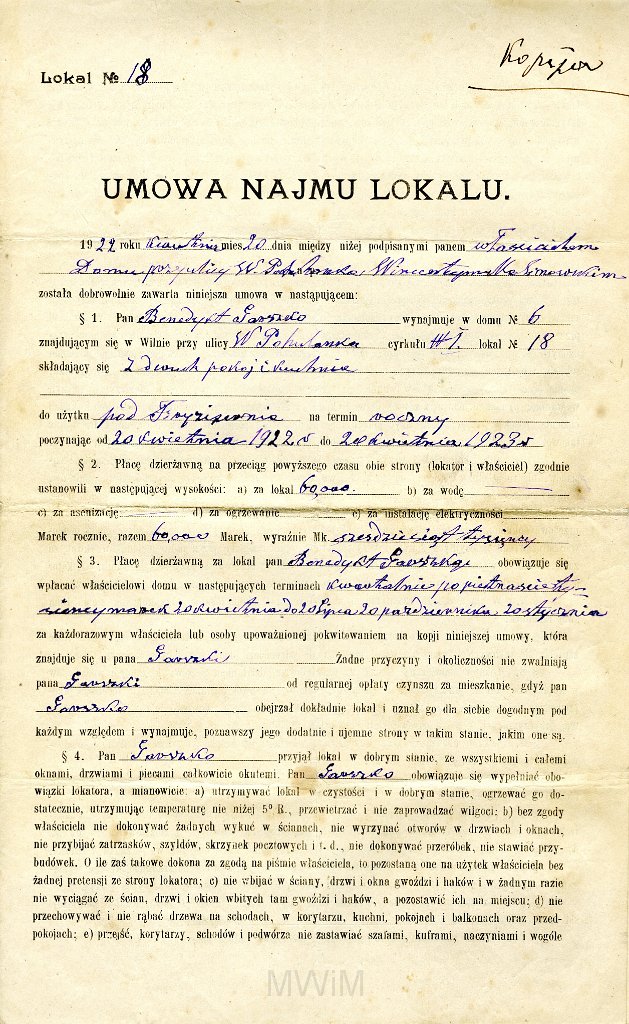 Lokal № 18
Kopija
UMOWA NAJMU LOKALU.
1922 roku kwietnia mies. 20 dnia między niżej podpisanymi panem właścicielem
Domu przy ulicy W. Pohulanka, Wincentym
została dobrowolnie zawarta niniejsza umowa w nastąpującem:
§ 1. Pan Benedykt Gawszko wynajmuje w domu № 6
znajdującym się w Wilnie przy ulicy W Pohulanka cyrkułu lokal № 18
składający się z dwuch pokoj i kuchnia
do użytku pod na termin roczny
poczynając od 20 kwietnia 1922 r do 20 kwietnia 1923 r
§ 2. Płacę dzierżawną na przeciąg powyższego czasu obie strony (lokator i właściciel) zgodnie
ustanowili w następującej wysokości: a) za lokal 60,000 b) za wodę
c) za asenizację d) za ogrzewanie e) za instalację elektryczności
Marek rocznie, razem 60,000 Marek, wyraźnie Mk. sześdziesiąt tysięncy
§ 3. Płacę dzierżawną za lokal pan Benedykt obowiązuje się
wpłacać właścicielowi domu w następujących terminach kwartalnie po pietnaście ty-
siency marek 20 kwietnia do 20 lipca 20 pazdziernika 20 stycznia
za każdorazowym właściciela lub osoby upoważnionej pokwitowaniem na kopji niniejszej umowy, która
znajduje się u pana Gawszki Żadne przyczyny i okoliczności nie zwalniają
pana Gawszki od regularnej opłaty czynszu za mieszkanie, gdyż pan
Gawszko obejrzał dokładnie lokal i uznał go dla siebie dogodnym pod
każdym względem i wynajmuje, poznawszy jego dodatnie i ujemne strony w takim stanie, jakim one są.
§ 4. Pan Gawszko przyjął lokal w dobrym stanie, ze wszystkiemi i całemi
oknami, drzwiami i piecami całkowicie okutemi. Pan Gawszko obowiązuje się wypełniać obo-
wiązki lokatora, a mianowicie: a) utrzymywać lokal w czystości i w dobrym stanie, ogrzewać go do-
statecznie, utrzymując temperaturę nie niżej 5° R., przewietrzać i nie zaprowadzać wilgoci; b) bez zgody
właściciela nie dokonywać żadnych wykuć w ścianach, nie wyrzynać otworów w drzwiach i oknach,
nie przybijać zatrzasków, szyldów, skrzynek pocztowych i t. d., nie dokonywać przeróbek, nie stawiać przy-
budówek. O ile zaś takowe dokona za zgodą na piśmie właściciela, to pozostaną one na użytek właściciela bez
żadnej pretensji ze strony lokatora; c) nie wbijać w ściany, drzwi i okna gwoździ i haków i w żadnym razie
nie wyciągać ze ścian, drzwi i okien wbitych tam gwoździ i haków, a pozostawić ich na miejscu; d) nie
przechowywać i nie rąbać drzewa na schodach, w korytarzu, kuchni, pokojach i balkonach oraz przed-
pokojach; e) przejść, korytarzy, schodów i podwórza nie zastawiać szafami, kuframi, naczyniami i wogóle
MWiM